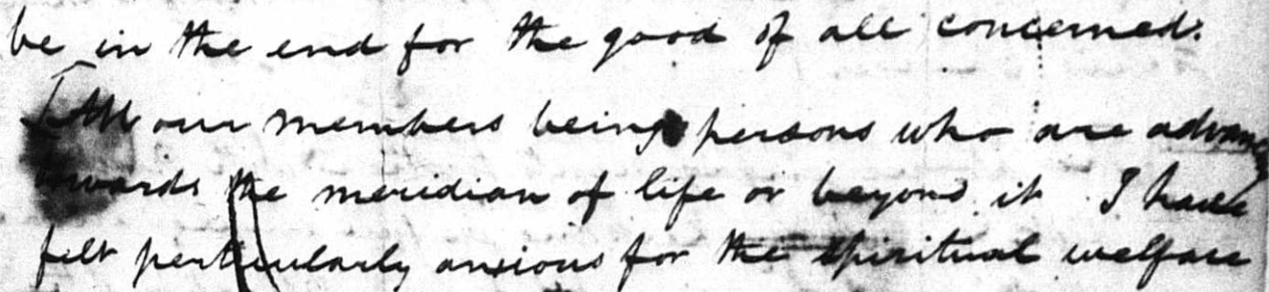 be in the end for the good of all concerned.
All our members being persons who are advancg
towards the meridian of life or beyond it I have
felt particularly anxious for the spiritual welfare